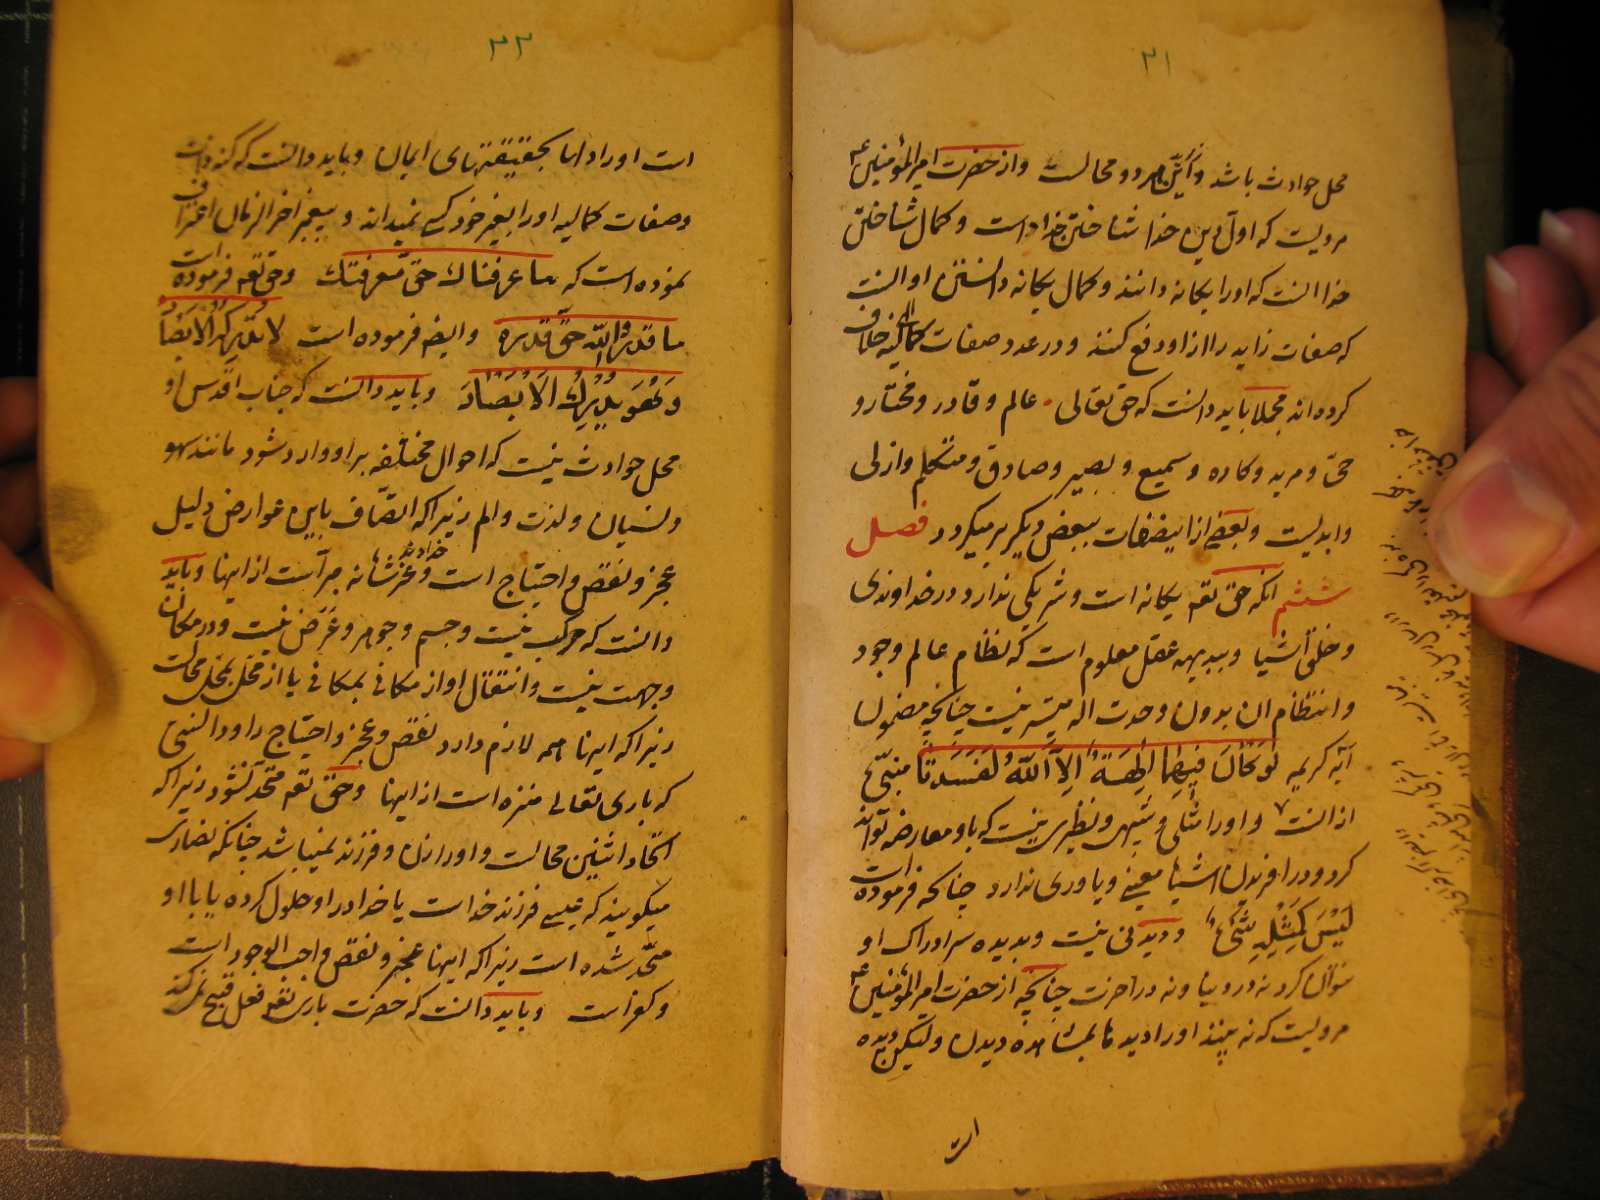 ۳۱
محل حوادث باشد و این هر دو محالست واز حضرت امیرالمؤمنین ع
مرویست که اول دین خدا شناختن خداست و کمال شناختن
خدا آنست که او را یکانه دانند و کمال یکانه دانستن او آنست
که صفات زایده را از او دفع کنند و در عدد صفات کمالیه خلاف
کرده اند مجملا باید دانست که حق تعالی عالم و قادر و مختار و
حیّ و مرید و کاره و سمیع و بصیر و صادق و متکلم و ازلی
و ابدیست و بعضی از اینصفات ببعض دیکر برمیکردد فصل
ششم آنکه حق تعه یکانه است و شریکی ندارد در خداوندی
و خلق اشیا و ببدیهه عقل معلوم است که نظام عالم وجود
و انتظام آن بدون وحدت اله میسر نیست چنانچه مضمون
آیه کریمه لَوْ کَانَ فِیهِمَا آلِهَةٌ اِلاَّ اللّهُ لَفَسَدَتَا منبئ
از آنست و او را مثلی و شبهی و نظیری نیست که با او معارضه تواند
کرد و در افریدن اشیا معینی و یاوری ندارد چنانکه فرموده است
لَیْسَ کَمِثْلِهِ شَیْءٌ و دیدنی نیست و بدیده سر ادراک او
نتوان کرد نه در دنیا و نه در آخرت چنانچه از حضرت امیرالمؤمنین ع
مرویست که نه بینند او را دیدها بمشاهده دیدن ولیکن دیده
است
۳۲
است او را دلها بحقیقتهای ایمان و باید دانست که کنه ذات
و صفات کمالیه او را بغیر خود کسی نمیداند و پیغمبر اخر الزمان اعتراف
نموده است که ما عرفناك حقّ معرفتك و حق تعه فرموده است
ما قدروا اللّه حقّ قدره و ایضا فرموده است لَا تُدْرِکُهُ الاَبْصَارُ
وَ هُوَ یُدْرِكُ الاَبْصَارَ و باید دانست که جناب اقدس او
محل حوادث نیست که احوال مختلفه بر او وارد شود مانند سهو
و نسیان و لذت و الم زیرا که اتصاف باین عوارض دلیل
عجز و نقص و احتیاج است و خدا عز شانه مبرّاست از اینها و باید
دانست که مرکب نیست و جسم و جوهر و عرض نیست و در مکان
و جهت نیست و انتقال او از مکانی بمکانی یا از محل بمحل محالست
زیرا که اینها همه لازم دارد نقص و عجز و احتیاج را و دانستی
که باری تعالی منزه است از اینها و حق تعه متحد نشود زیرا که
اتحاد اثنین محالست و او را زن و فرزند نمیباشد چنانکه نصاری
میکویند که عیسی فرزند خداست یا خدا در او حلول کرده یا با او
متّحد شده است زیرا که اینها عجز و نقص واجب الوجود است
و کفر است و باید دانست که حضرت باری تعه فعل قبیح نمیکند